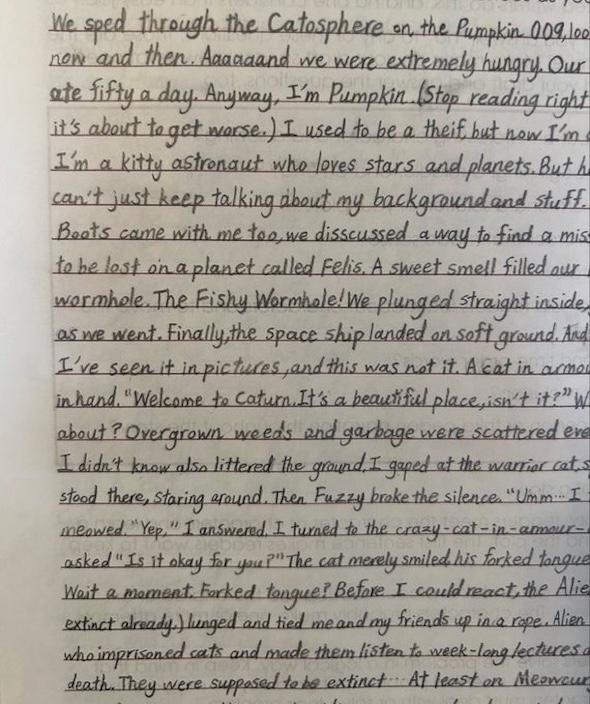 We sped through the Catosphere on the Pumpkin 009,100
now and then. Aaaaaand we were extremely hungry. Our
ate fifty a day. Anyway, I'm Pumpkin. (Stop reading right
it's about to get worse.) I used to be a theif, but now I'm
I'm a kitty astronaut who loves stars and planets. But
can't just keep talking about my background and stuff.
Boots came with me too, we disscussed a way to find a
to be lost on a planet called Felis. A sweet smell filled our
wormhole. The Fishy Wormhole! We plunged straight inside,
as we went. Finally, the space ship landed on soft ground. And
I've seen it in pictures, and this was not it. A cat in
in hand. "Welcome to Caturn. It's a beautiful place, isn't it?"
about? Overgrown weeds and garbage were scattered
I didn't know also littered the ground. I gaped at the warrior cat,
stood there, staring around. Then Fuzzy broke the silence. "Umm... I
meowed. "Yep," I answered. I turned to the crazy-cat-in-armour-
asked "Is it okay for you?" The cat merely smiled, his forked tongue
Wait a moment. Forked tongue? Before I could react, the
extinct already.) lunged and tied me and my friends up in a rope. Alien
who imprisoned cats and made them listen to week-long lectures
death. They were supposed to be extinct... At least on